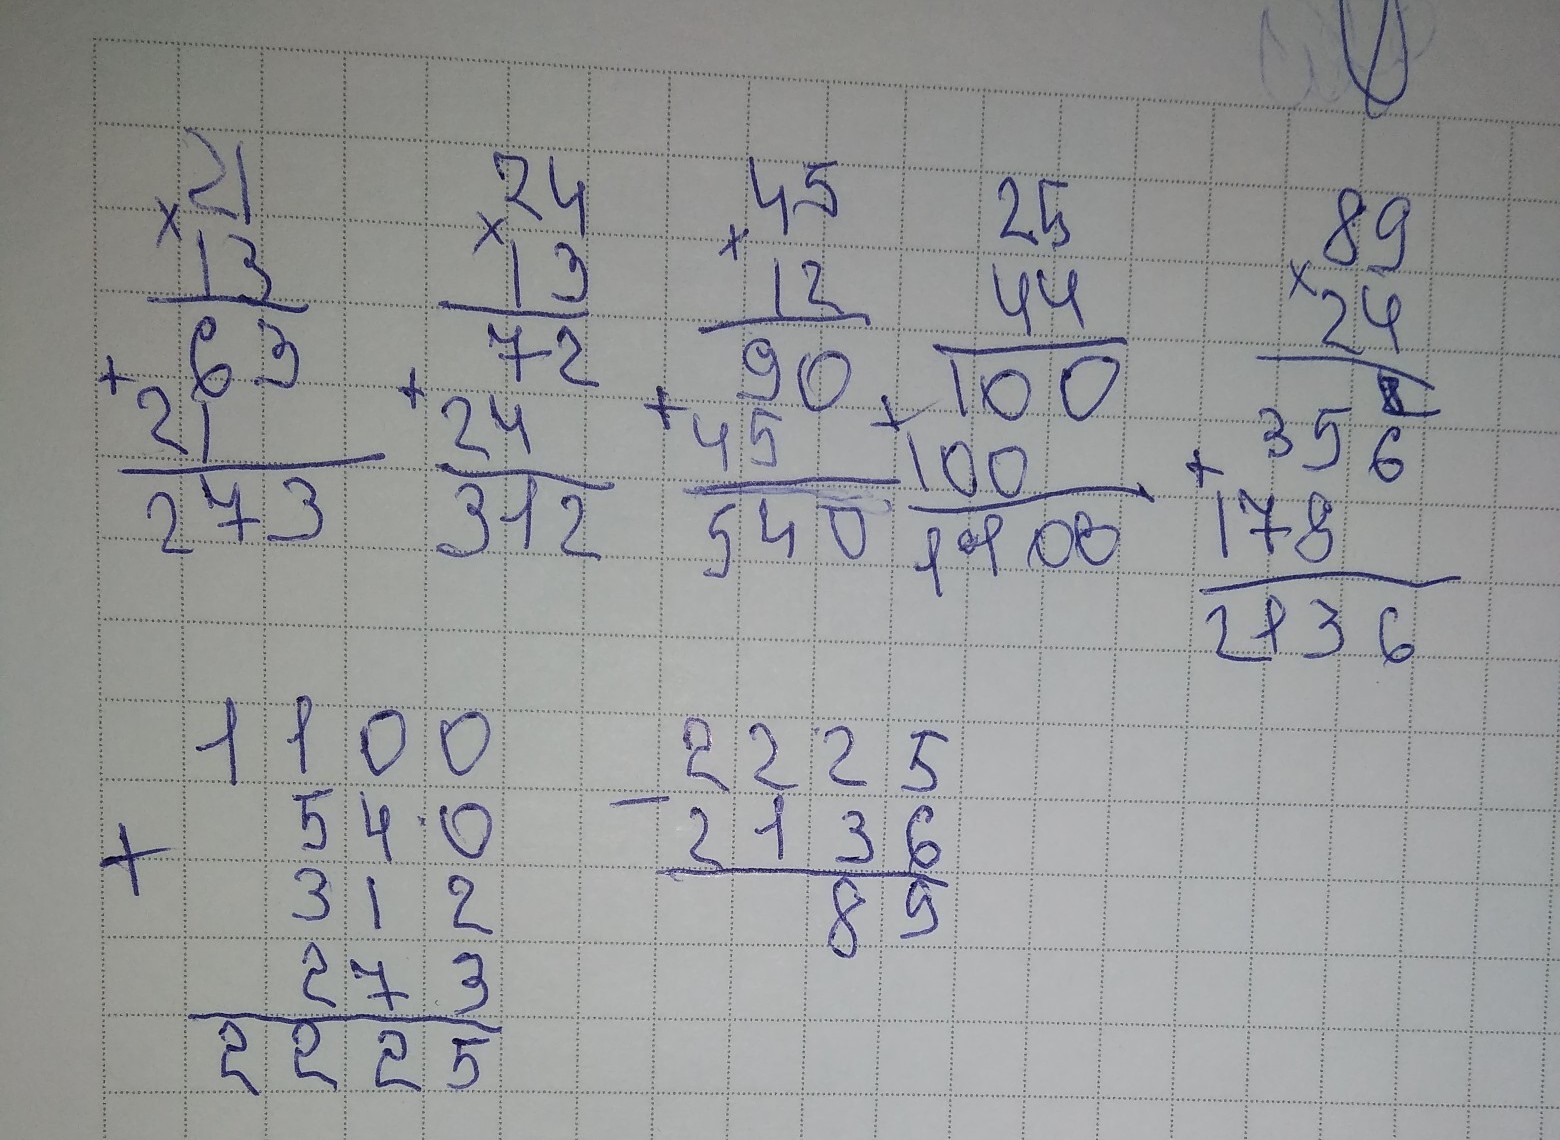 21
× 13
63
+ 21
273
24
× 13
72
+ 24
312
45
× 12
90
+ 45
540
25
44
100
+ 100
1100
89
× 24
356
+ 178
2136
1100
540
+
312
273
2225
2225
−
2136
89